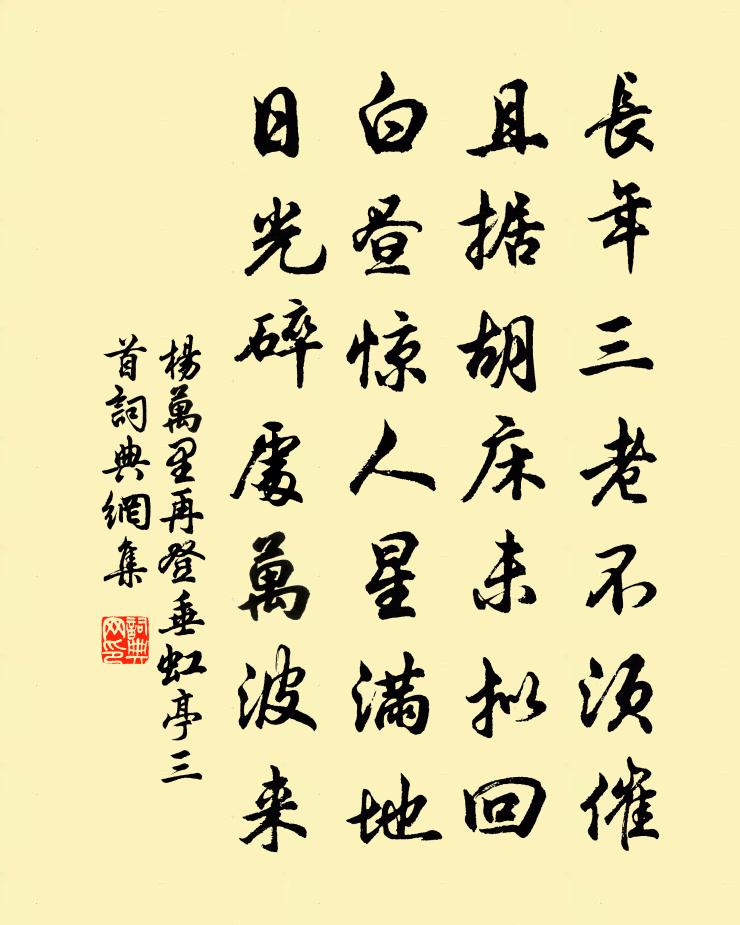 長年三老不須催
且据胡床未拟回
白昼惊人星滿地
日光碎處萬波来
楊萬里再登垂虹亭三
首詞典網集
詞典
网印